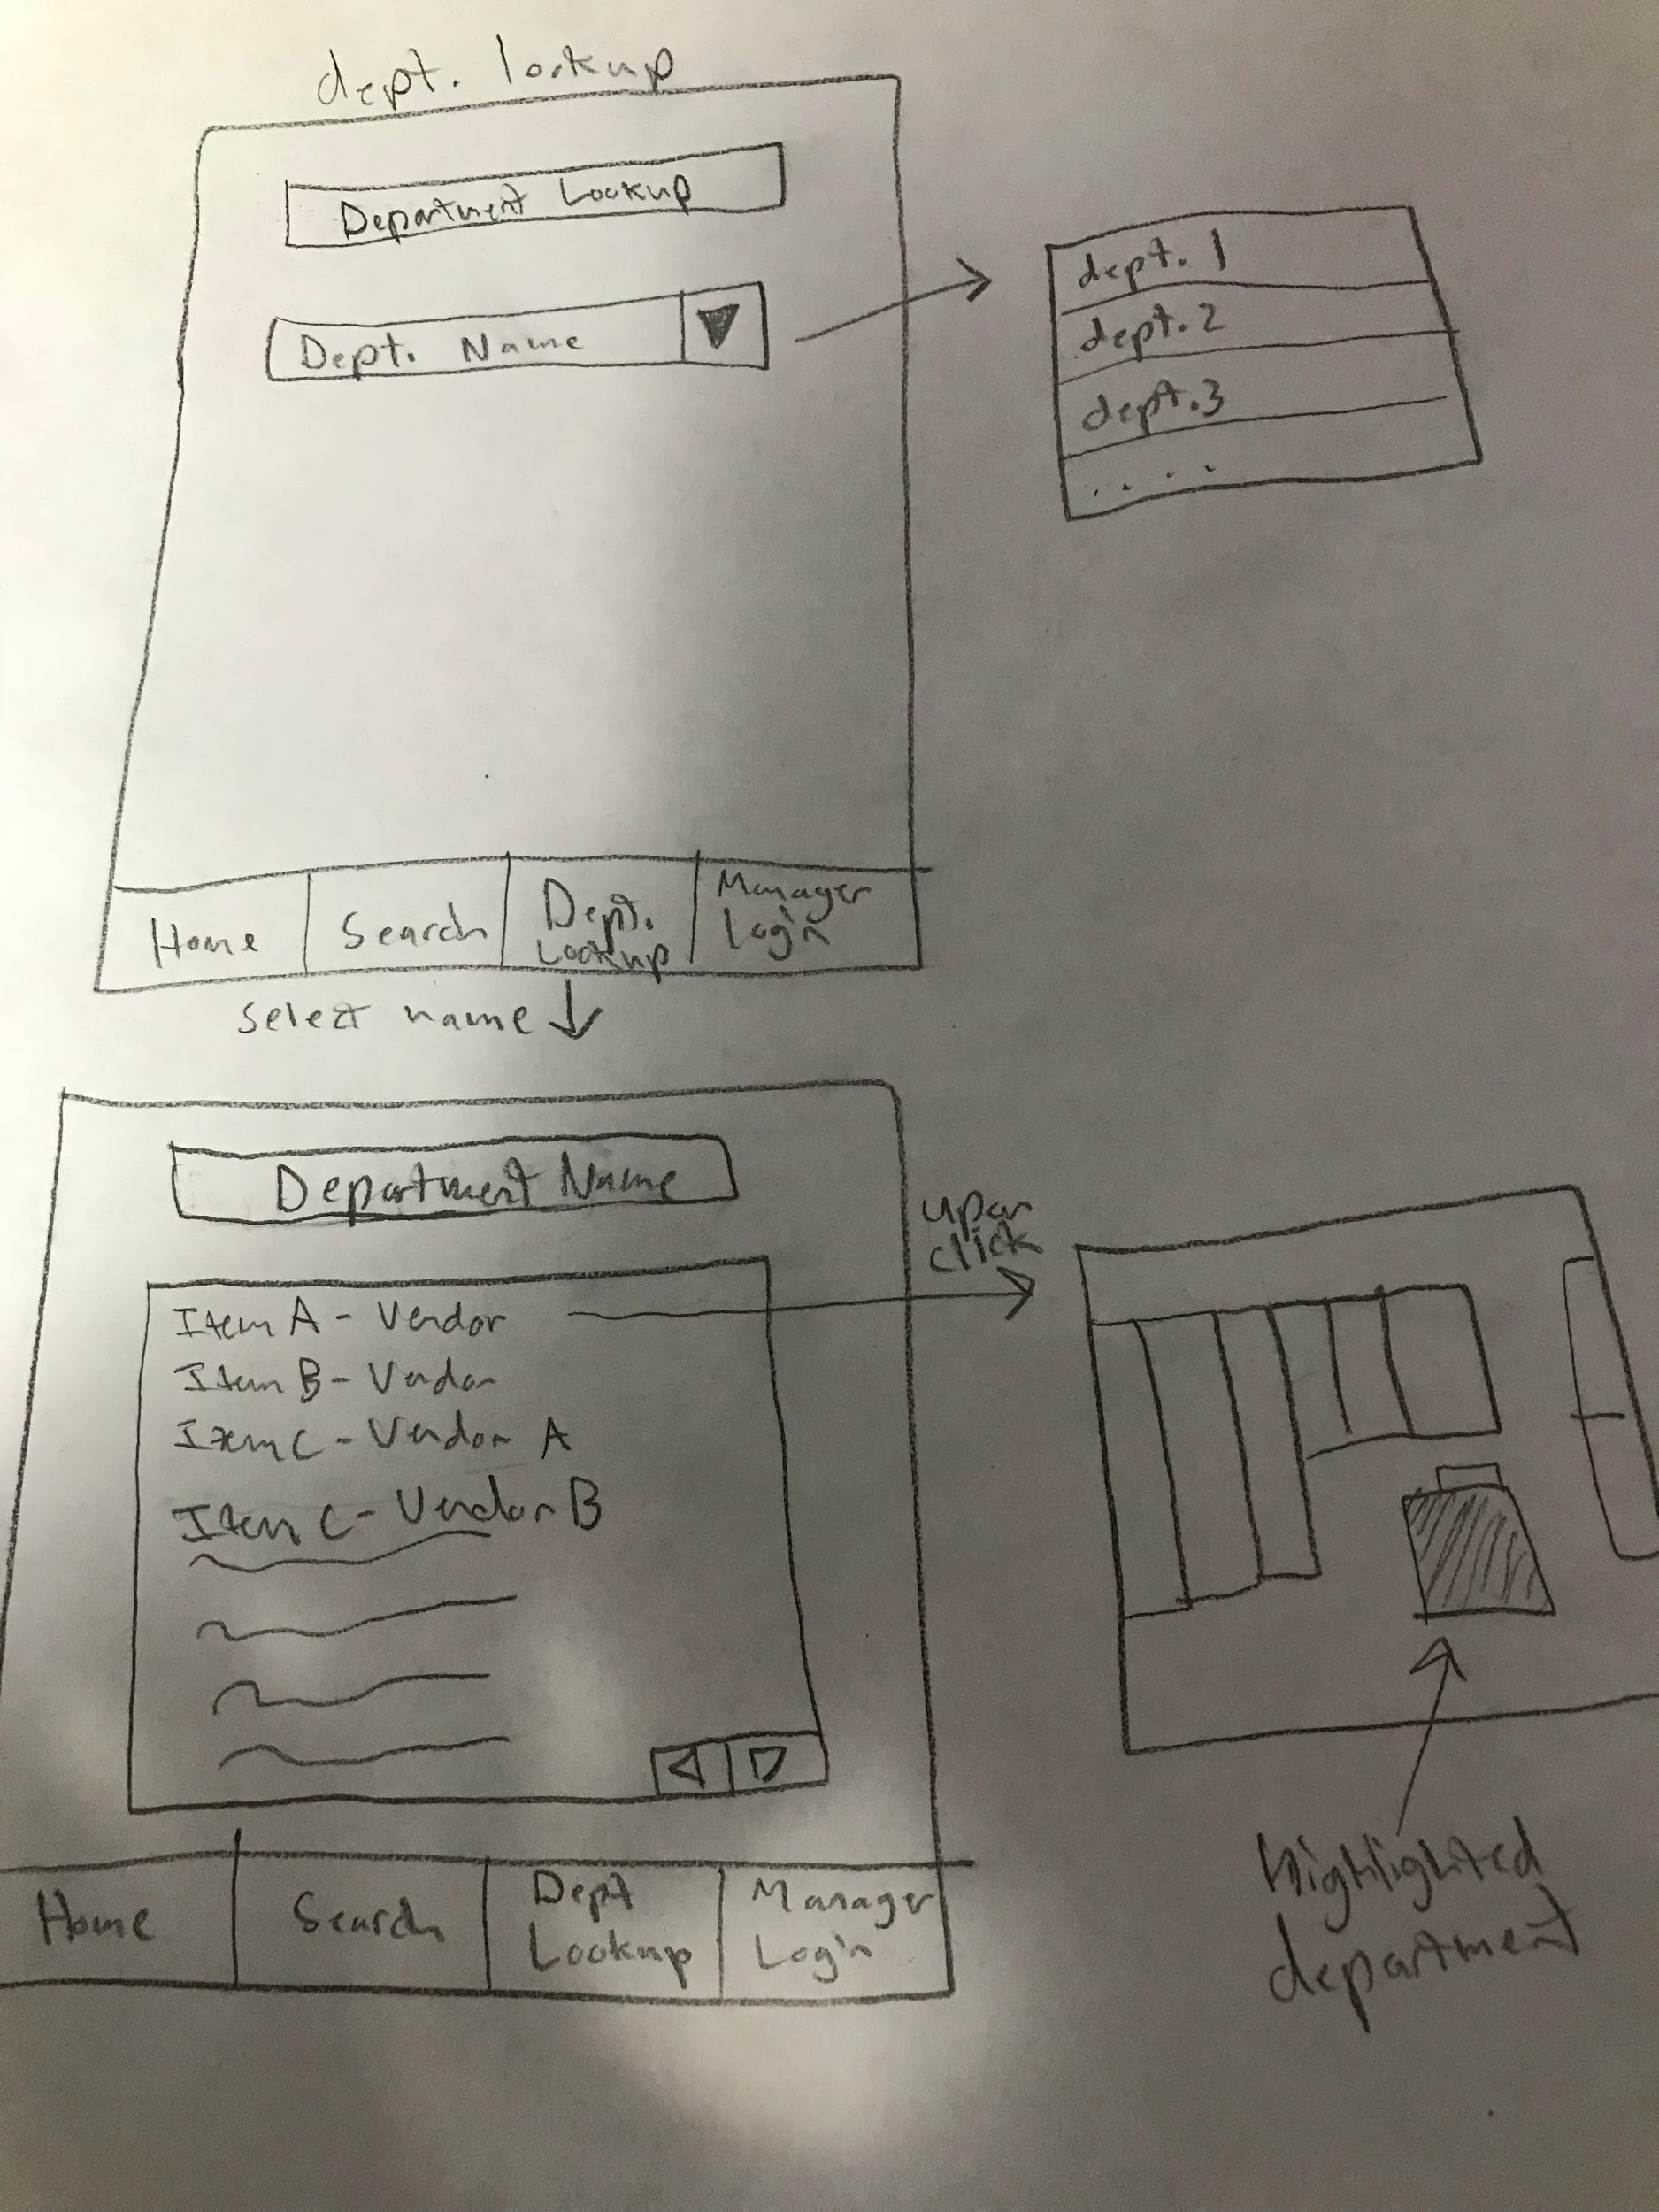 dept. lookup
Department Lookup
Dept. Name
dept. 1
dept. 2
dept. 3
. . . .
Home
Search
Dept.
Lookup
Manager
Login
Select name
Department Name
Item A - Vendor
Item B - Vendor
Item C - Vendor A
Item C - Vendor B
upon
click
Highlighted
department
Home
Search
Dept
Lookup
Manager
Login